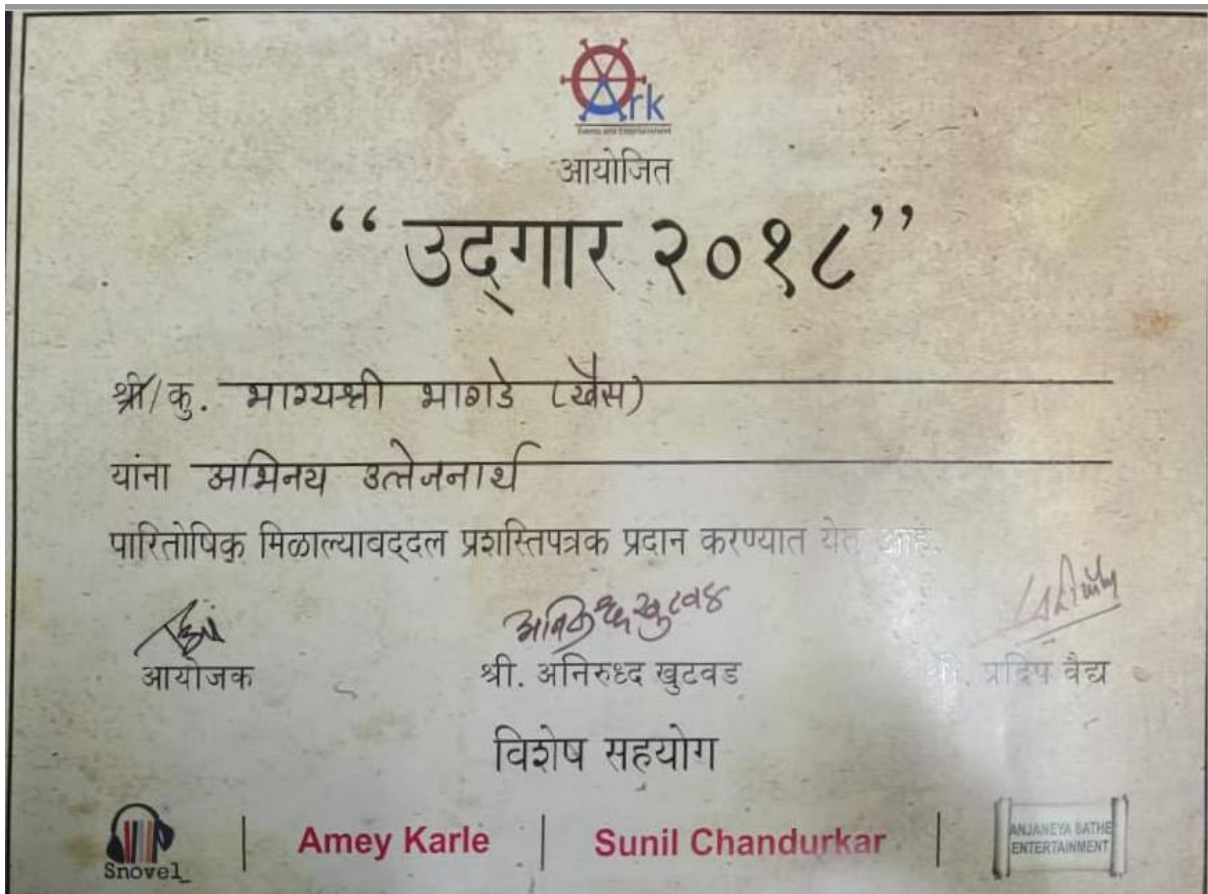 Ark
Events and Entertainment
आयोजित
“उद्‌गार २०१८”
श्री/कु. भाग्यश्री भागडे (खैस)
यांना अभिनय उत्तेजनार्थ
पारितोषिक मिळाल्याबद्दल प्रशस्तिपत्रक प्रदान करण्यात येत आहे.
अनिरुद्ध खुटवड
आयोजक श्री. अनिरुध्द खुटवड श्री. प्रदिप वैद्य
विशेष सहयोग
Snovel_ | Amey Karle | Sunil Chandurkar | ANJANEYA SATHE ENTERTAINMENT